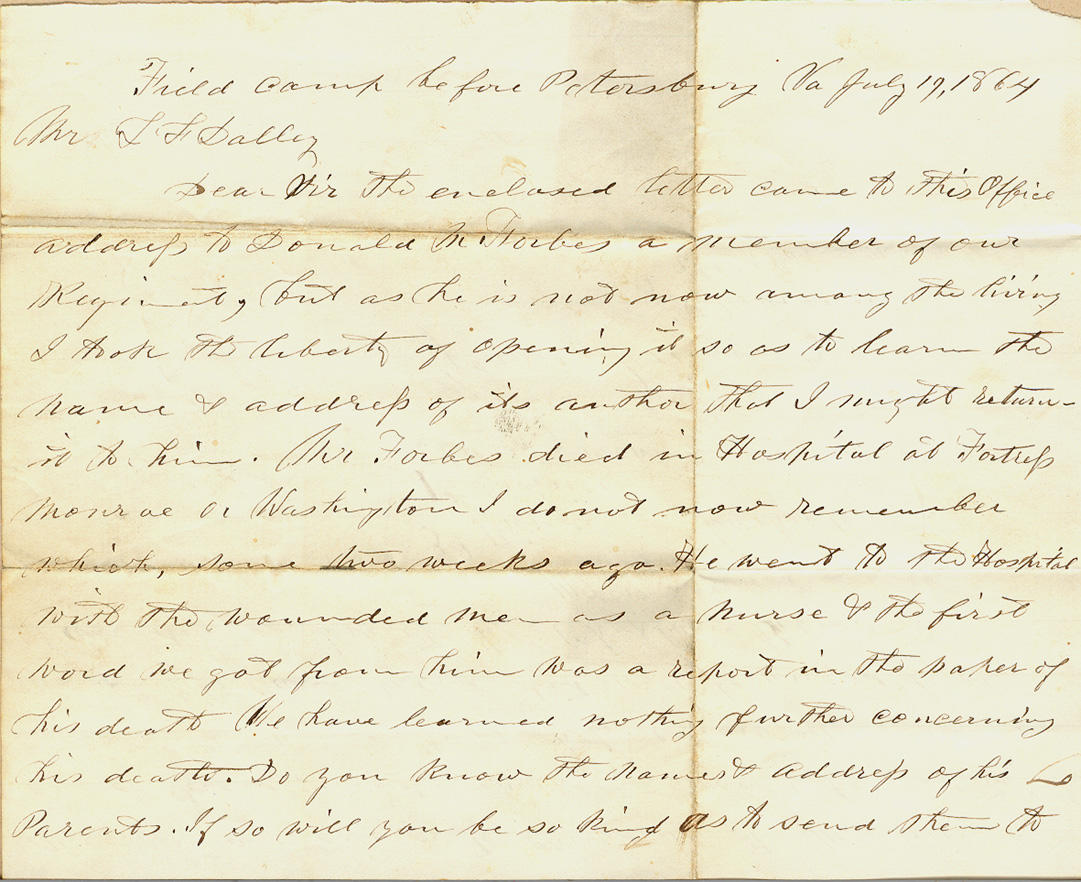 Field camp before Petersburg Va July 19, 1864
Mr L F Dalley
Dear Sir the enclosed letter came to this Office
address to Donald M Forbes a member of our
Regiment, but as he is not now among the living
I took the liberty of opening it so as to learn the
name & address of its author that I might return-
it to him. Mr Forbes died in Hospital at Fortress
Monroe or Washington I do not now remember
which, some two weeks ago. He went to the Hospital
with the wounded men as a nurse & the first
word we got from him was a report in the paper of
his death We have learned nothing further concerning
his death. Do you know the names & address of his
Parents. If so will you be so kind as to send them to